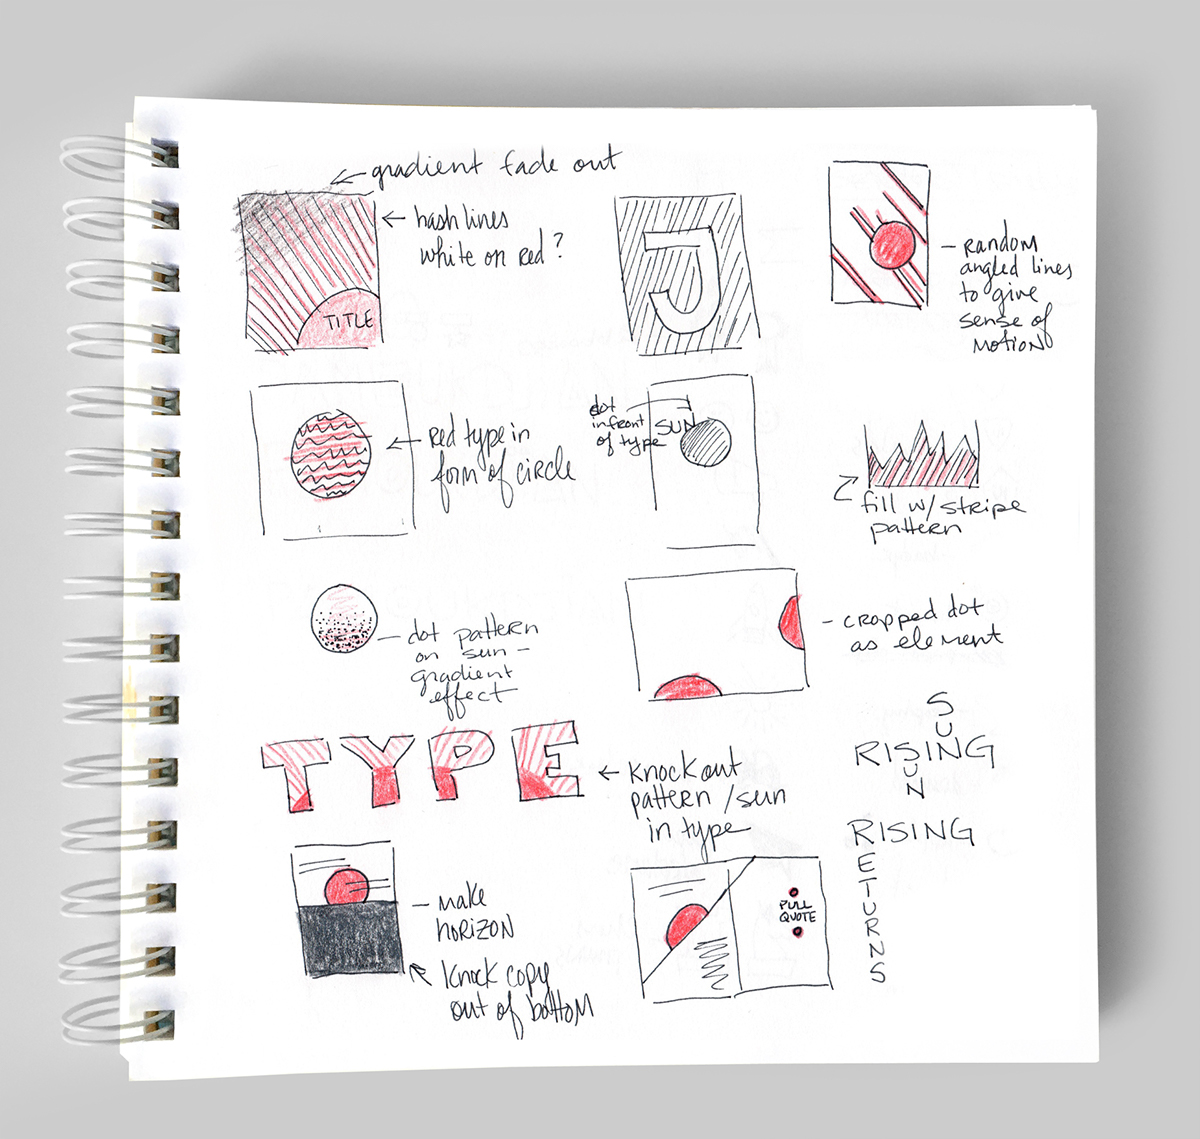 gradient fade out
hash lines
white on red?
TITLE
J
random
angled lines
to give
sense of
motion
Red type in
form of circle
dot
in front
of type
SUN
fill w/stripe
pattern
dot pattern
on sun -
gradient
effect
cropped dot
as element
TYPE
Knock out
pattern/sun
in type
SUN
RISING
SUN
RISING
RETURNS
make
horizon
Knock copy
out of bottom
PULL
QUOTE